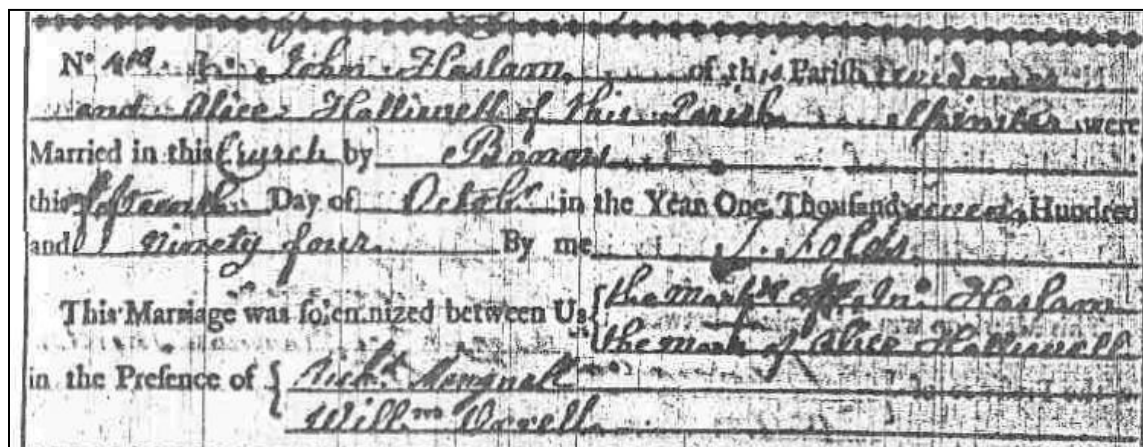 Nº John Haslam of this Parish Widower
and Alice Halliwell of this Parish Spinster were
Married in this Church by Banns
this fifteenth Day of Octobr in the Year One Thousand seven Hundred
and Ninety four By me J. Folds
This Marriage was solemnized between Us { the mark of Jno Haslam
the mark of Alice Halliwell
in the Presence of { Richd
Willm Orrell